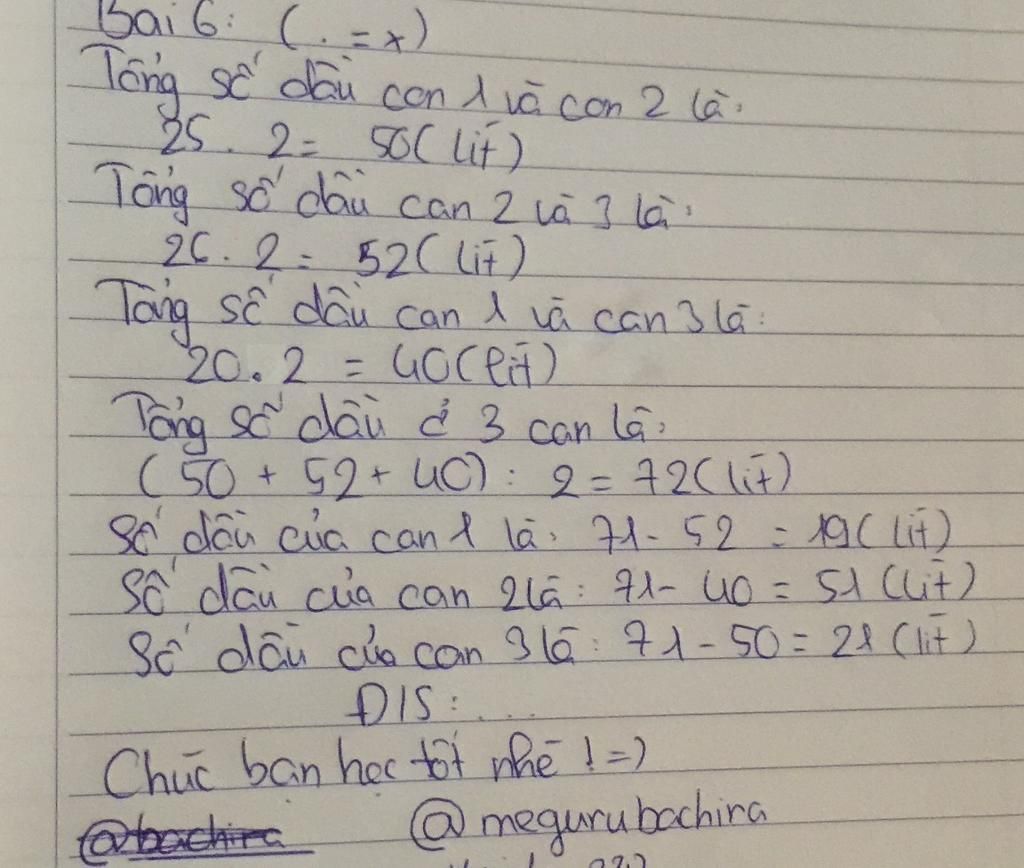 Bài 6: ( . = x)
Tổng số dầu can 1 và can 2 là:
25 . 2 = 50 (lít)
Tổng số dầu can 2 và 3 là:
26 . 2 = 52 (lít)
Tổng số dầu can 1 và can 3 là:
20 . 2 = 40 (lít)
Tổng số dầu ở 3 can là:
(50 + 52 + 40) : 2 = 72 (lít)
Số dầu của can 1 là: 71 - 52 = 19 (lít)
Số dầu của can 2 là: 71 - 40 = 51 (lít)
Số dầu của can 3 là: 71 - 50 = 21 (lít)
Đ/S: ...
Chúc bạn học tốt nhé ! =)
@bachira @megurubachira